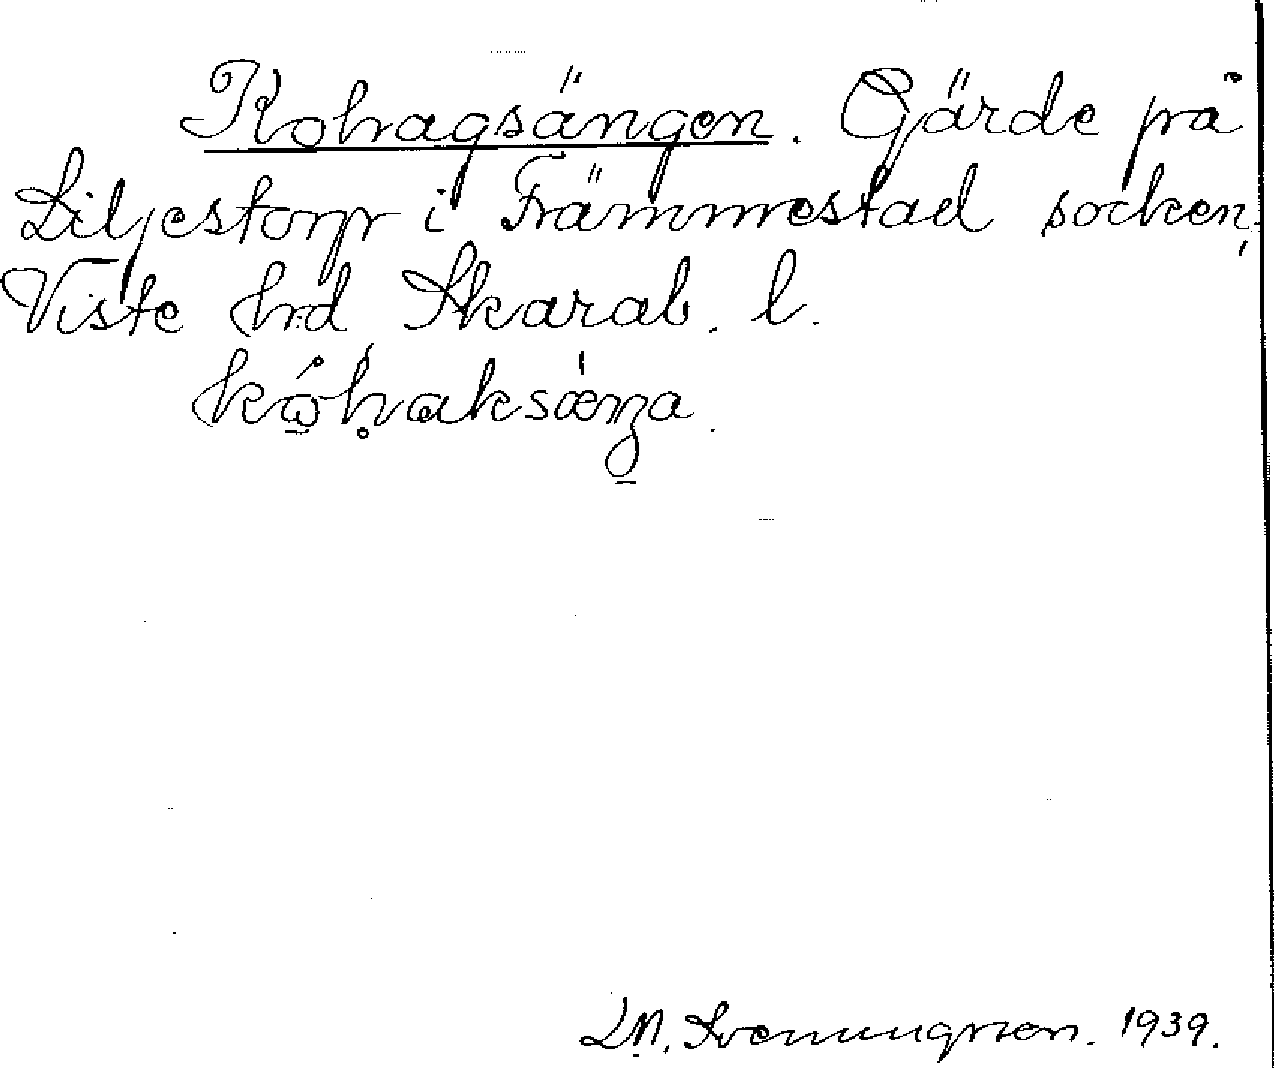 Kohagsängen. Gärde på
Liljestorp i Främmestad socken,
Viste hd Skarab. l.
kóhaksæŋa.
L.N. Svenungsson. 1939.